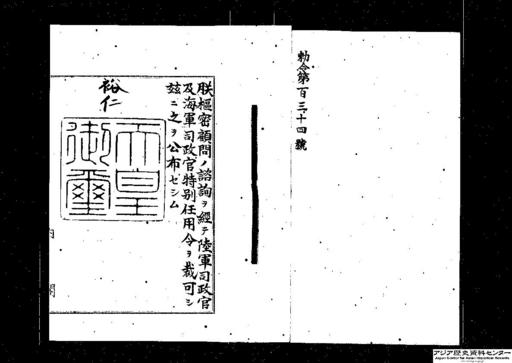 勅令第百三十四號
朕樞密顧問ノ諮詢ヲ經テ陸軍司政官
及海軍司政官特別任用令ヲ裁可シ
玆ニ之ヲ公布セシム
裕仁
天皇
御璽
内閣
アジア歴史資料センター
Japan Center for Asian Historical Records